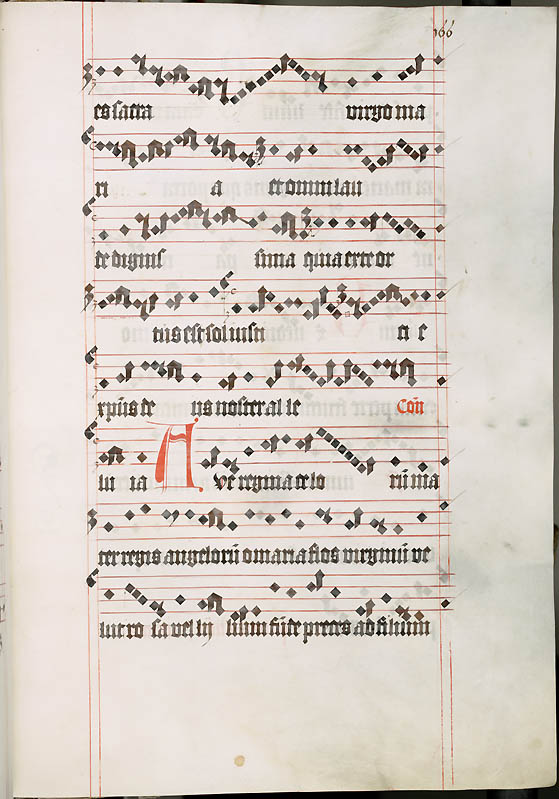 166
es sacra virgo ma
ri a et omni lau
de dignis sima quia ex te or
tus est sol iusti ci e
xp̄us de us noster al le Cōn
lu ia Ave regina celo rū ma
ter regis angelorū o maria flos virginū ve
lut ro sa vel lij lium fūde preces ad filium